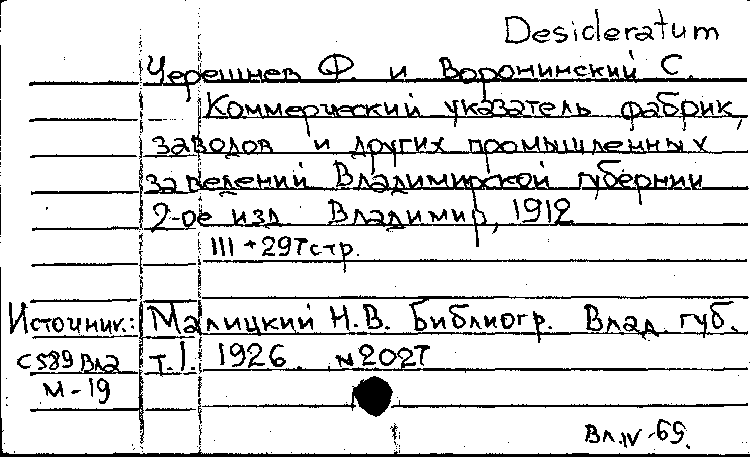 Desideratum
Черешнев Ф. и Воронинский С.
Коммерческий указатель фабрик,
заводов и других промышленных
заведений Владимирской губернии
2-ое изд. Владимир, 1912
III + 297 стр.
Источник: Малицкий Н.В. Библиогр. Влад. губ.
С589 Вла т.I. 1926. №2027
М-19
Вл.IV-69.